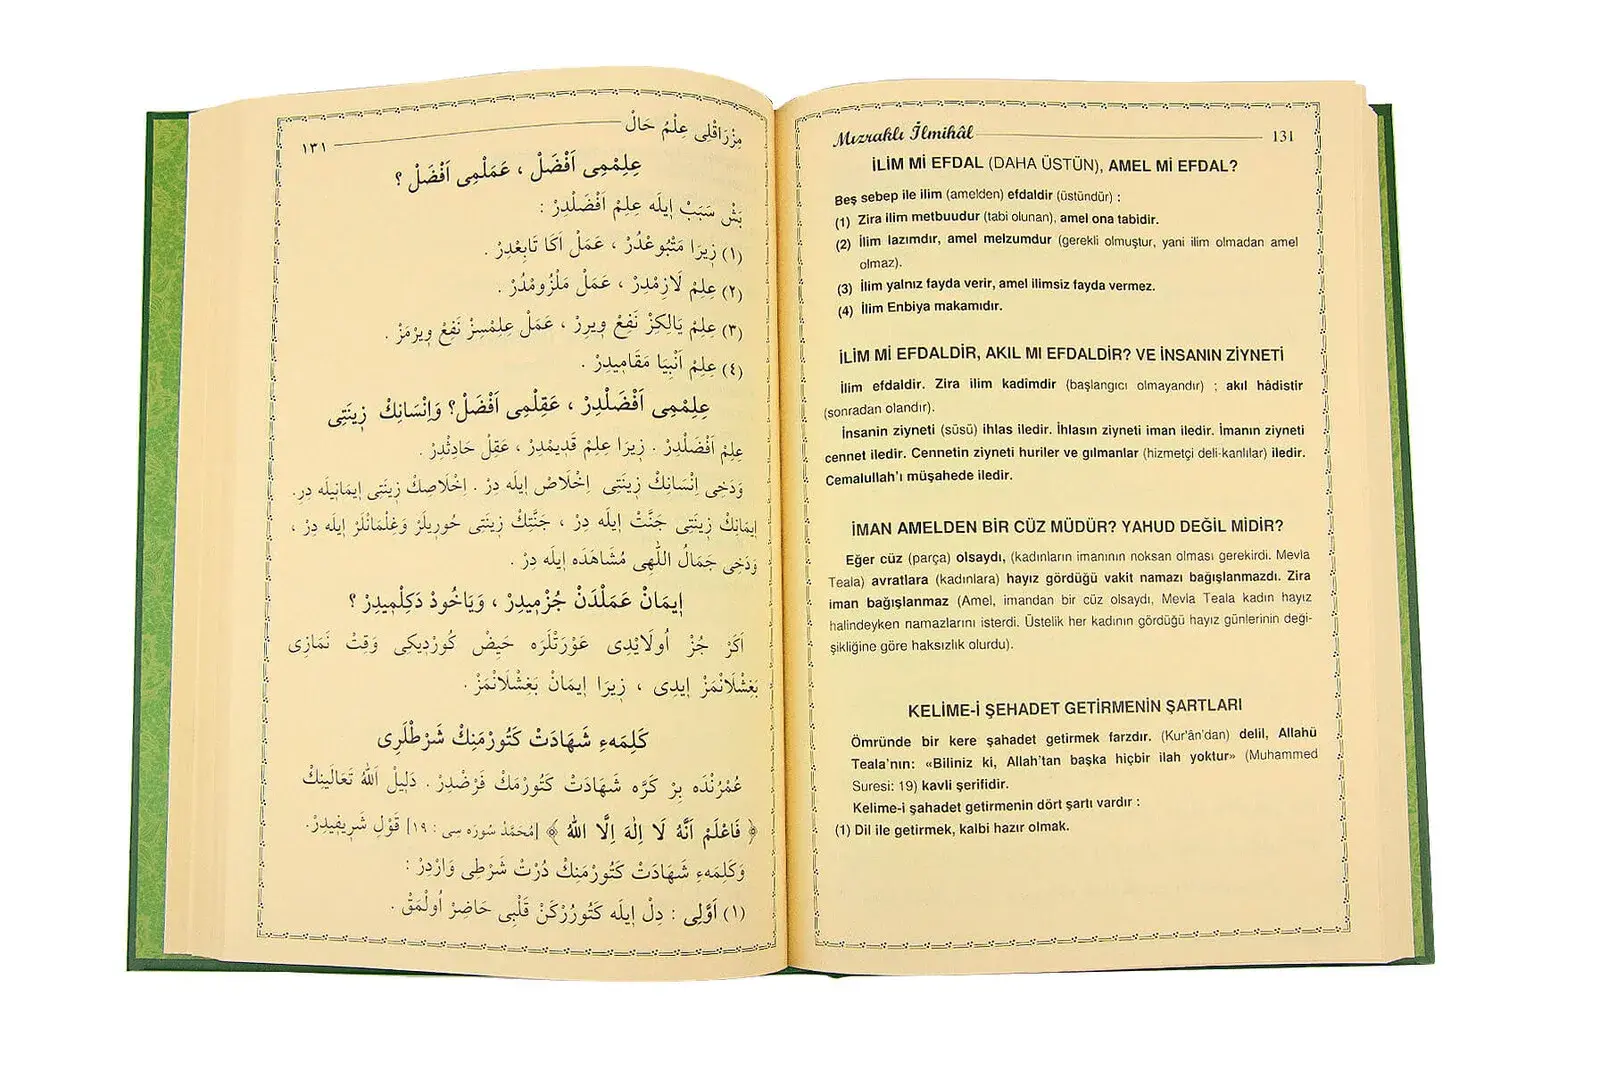 مِزْرَاقْلِى عِلْمُ حَالْ
١٣١
عِلِمْمِى اَفْضَلْ ، عَمَلْمِى اَفْضَلْ ؟
بَشْ سَبَبْ اِيلَه عِلِمْ اَفْضَلْدِرْ :
(١) زِيرَا مَتْبُوعْدُرْ ، عَمَلْ اَكَا تَابِعْدِرْ .
(٢) عِلِمْ لَازِمْدِرْ ، عَمَلْ مَلْزُومْدُرْ .
(٣) عِلِمْ يَالِكِزْ نَفِعْ وِيرِرْ ، عَمَلْ عِلِمْسِزْ نَفِعْ وِيرْمَزْ .
(٤) عِلِمْ اَنْبِيَا مَقَامِيدِرْ .
عِلِمْمِى اَفْضَلْدِرْ ، عَقِلْمِى اَفْضَلْ؟ وَاِنْسَانِكْ زِينَتِى
عِلِمْ اَفْضَلْدِرْ . زِيرَا عِلِمْ قَدِيمْدِرْ ، عَقِلْ حَادِثْدِرْ .
وَدَخِى اِنْسَانِكْ زِينَتِى اِخْلَاصْ اِيلَه دِرْ . اِخْلَاصِكْ زِينَتِى اِيمَانِيلَه دِرْ.
اِيمَانِكْ زِينَتِى جَنَّتْ اِيلَه دِرْ ، جَنَّتِكْ زِينَتِى حُورِيلَرْ وَغِلْمَانْلَرْ اِيلَه دِرْ ،
وَدَخِى جَمَالُ اللّٰهِى مُشَاهَدَه اِيلَه دِرْ .
اِيمَانْ عَمَلْدَنْ جُزْمِيدِرْ ، وَيَاخُودْ دَكِلْمِيدِرْ ؟
اَكَرْ جُزْ اُولَايْدِى عَوْرَتْلَرَه حَيِضْ كُورْدِيكِى وَقِتْ نَمَازِى
بَغِشْلَانْمَزْ اِيدِى ، زِيرَا اِيمَانْ بَغِشْلَانْمَزْ .
كَلِمَهءِ شَهَادَتْ كَتُورْمَنِكْ شَرْطْلَرِى
عُمْرُنْدَه بِرْ كَرَّه شَهَادَتْ كَتُورْمَكْ فَرْضْدِرْ . دَلِيلْ اَللّٰهُ تَعَالَينِكْ
﴿ فَاعْلَمْ اَنَّهُ لَا اِلٰهَ اِلَّا اللّٰهُ ﴾ [مُحَمَّدْ سُورَه سِى : ١٩] قَوْلِ شَرِيفِيدِرْ.
وَكَلِمَهءِ شَهَادَتْ كَتُورْمَنِكْ دُرْتْ شَرْطِى وَارْدِرْ :
(١) اَوَّلِى : دِلْ اِيلَه كَتُورُرْكَنْ قَلْبِى حَاضِرْ اُولْمَقْ .
Mızraklı İlmihâl
131
İLİM Mİ EFDAL (DAHA ÜSTÜN), AMEL Mİ EFDAL?
Beş sebep ile ilim (amelden) efdaldir (üstündür) :
(1) Zira ilim metbuudur (tabi olunan), amel ona tabidir.
(2) İlim lazımdır, amel melzumdur (gerekli olmuştur, yani ilim olmadan amel
olmaz).
(3) İlim yalnız fayda verir, amel ilimsiz fayda vermez.
(4) İlim Enbiya makamıdır.
İLİM Mİ EFDALDİR, AKIL MI EFDALDİR? VE İNSANIN ZİYNETİ
İlim efdaldir. Zira ilim kadimdir (başlangıcı olmayandır) ; akıl hâdistir
(sonradan olandır).
İnsanin ziyneti (süsü) ihlas iledir. İhlasın ziyneti iman iledir. İmanın ziyneti
cennet iledir. Cennetin ziyneti huriler ve gılmanlar (hizmetçi deli-kanlılar) iledir.
Cemalullah'ı müşahede iledir.
İMAN AMELDEN BİR CÜZ MÜDÜR? YAHUD DEĞİL MİDİR?
Eğer cüz (parça) olsaydı, (kadınların imanının noksan olması gerekirdi. Mevla
Teala) avratlara (kadınlara) hayız gördüğü vakit namazı bağışlanmazdı. Zira
iman bağışlanmaz (Amel, imandan bir cüz olsaydı, Mevla Teala kadın hayız
halindeyken namazlarını isterdi. Üstelik her kadının gördüğü hayız günlerinin deği-
şikliğine göre haksızlık olurdu).
KELİME-İ ŞEHADET GETİRMENİN ŞARTLARI
Ömründe bir kere şahadet getirmek farzdır. (Kur'ân'dan) delil, Allahü
Teala'nın: «Biliniz ki, Allah'tan başka hiçbir ilah yoktur» (Muhammed
Suresi: 19) kavli şerifidir.
Kelime-i şahadet getirmenin dört şartı vardır :
(1) Dil ile getirmek, kalbi hazır olmak.